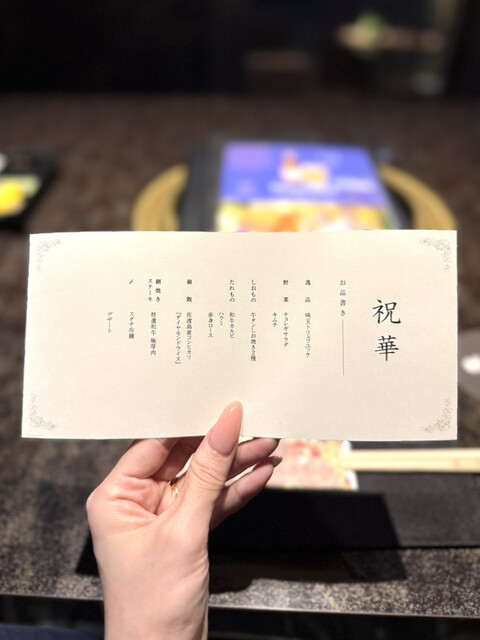 祝華
お品書き
逸品 味玉トリュフユッケ
キムチ
野菜 チョレギサラダ
しおもの 牛タンしお焼き2種
たれもの 和牛カルビ
ハラミ
赤身ロース
御飯 佐渡島産コシヒカリ
『ダイヤモンドライス』
網焼き
ステーキ 特選和牛 極厚肉
〆 スダチ冷麺
デザート